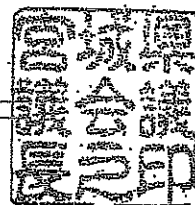 宮城県
議会議
長之印